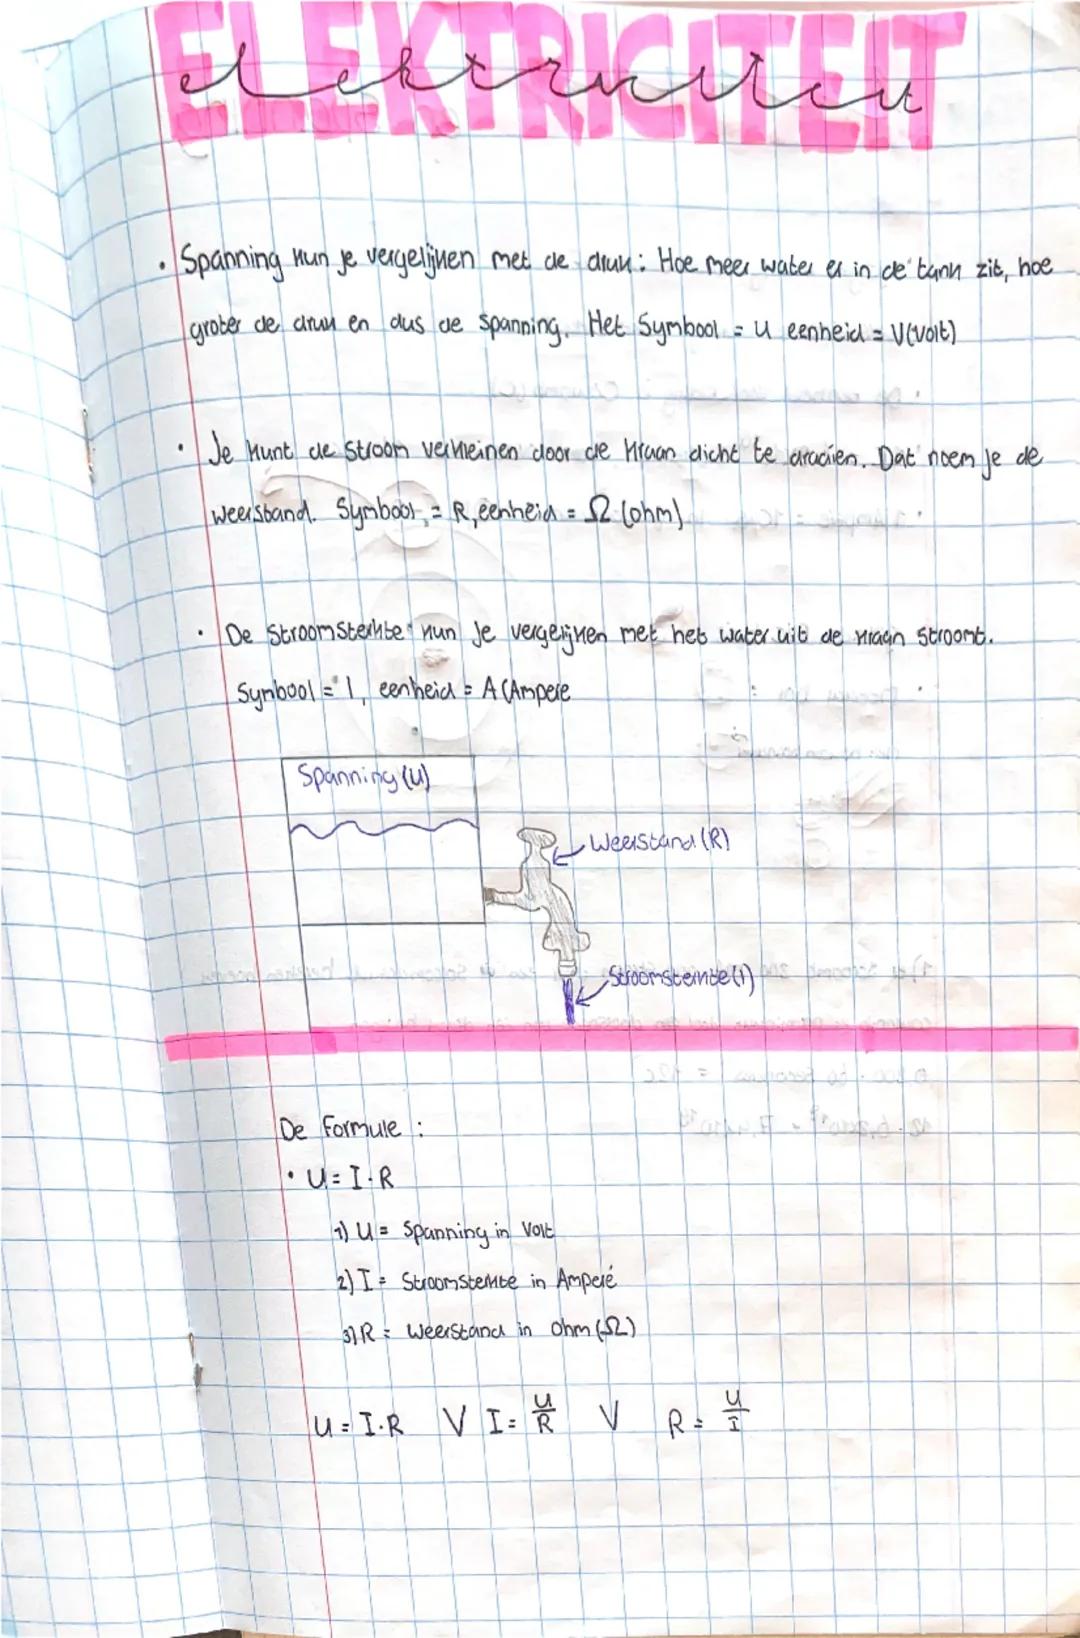 ELEKTRICITEIT
elektriciteit
• Spanning kun je vergelijken met de druk: Hoe meer water er in de tank zit, hoe
groter de druk en dus de spanning. Het Symbool = U eenheid = V(Volt)
• Je kunt de Stroom verkleinen door de kraan dicht te draaien. Dat noem je de
weerstand. Symbool = R, eenheid = Ω (ohm)
• De Stroomsterkte kun je vergelijken met het water uit de kraan stroomt.
Symbool = I, eenheid = A (Ampere
Spanning (U)
Weerstand (R)
Stroomsterkte (I)
De Formule :
• U = I · R
1) U = Spanning in Volt
2) I = Stroomsterkte in Amperé
3) R = Weerstand in Ohm (Ω)
U = I · R V I = U/R V R = U/I